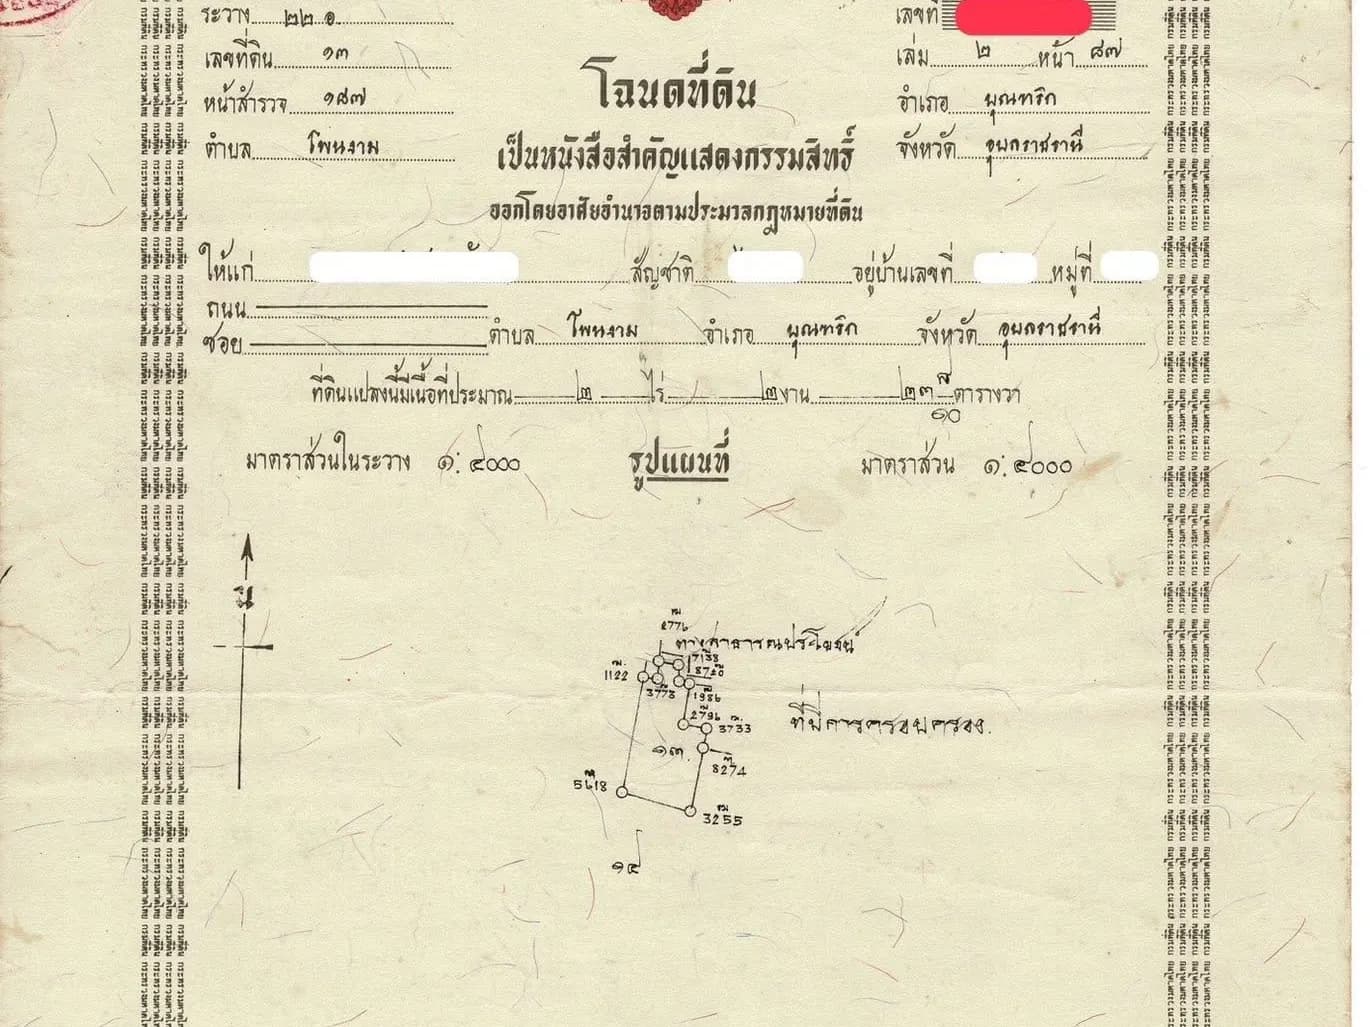 ระวาง ๒๒ ๑ เลขที่
เลขที่ดิน ๑๓ เล่ม ๒ หน้า ๘๗
โฉนดที่ดิน
หน้าสำรวจ ๑๘๗ อำเภอ บุณฑริก
ตำบล โพนงาม จังหวัด อุบลราชธานี
เป็นหนังสือสำคัญแสดงกรรมสิทธิ์
ออกโดยอาศัยอำนาจตามประมวลกฎหมายที่ดิน
ให้แก่ สัญชาติ อยู่บ้านเลขที่ หมู่ที่
ถนน
ซอย ตำบล โพนงาม อำเภอ บุณฑริก จังหวัด อุบลราชธานี
ที่ดินแปลงนี้มีเนื้อที่ประมาณ ๒ ไร่ ๒ งาน ๒๓ ตารางวา
๑๐
มาตราส่วนในระวาง ๑:๔๐๐๐ รูปแผนที่ มาตราส่วน ๑:๔๐๐๐
น
ทางสาธารณประโยชน์
7138
1122 8720
3773 1986
2796 3733
ที่มีการครอบครอง
๑๓
8274
5618
3255
๑๔